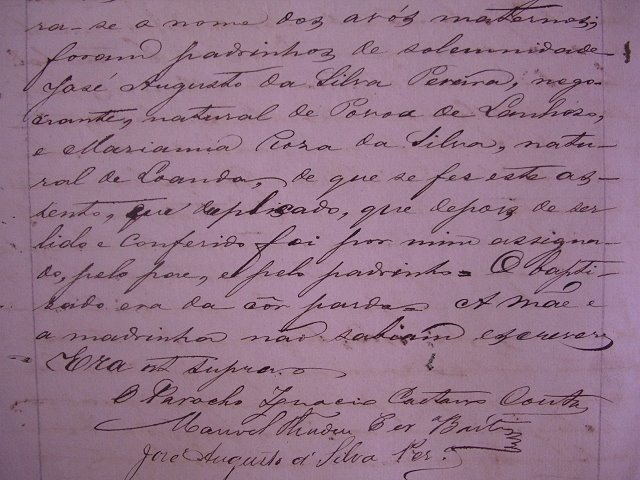 ra-se o nome dos avós maternos;
foram padrinhos de solemnidade
José Augusto da Silva Pereira, nego-
ciante, natural de Povoa de Lanhoso,
e Marianna Cora da Silva, natu-
ral de Loanda, de que se fes este as-
sento, que duplicado, que depois de ser
lido e conferido foi por mim assigna-
do, pelo pae, e pelo padrinho= O bapti-
sado era da côr parda= A mãe e
a madrinha não sabiam escrever
Era ut supra.
O Parocho Ignacio Caetano
Manoel
José Augusto d' Silva Per.ª